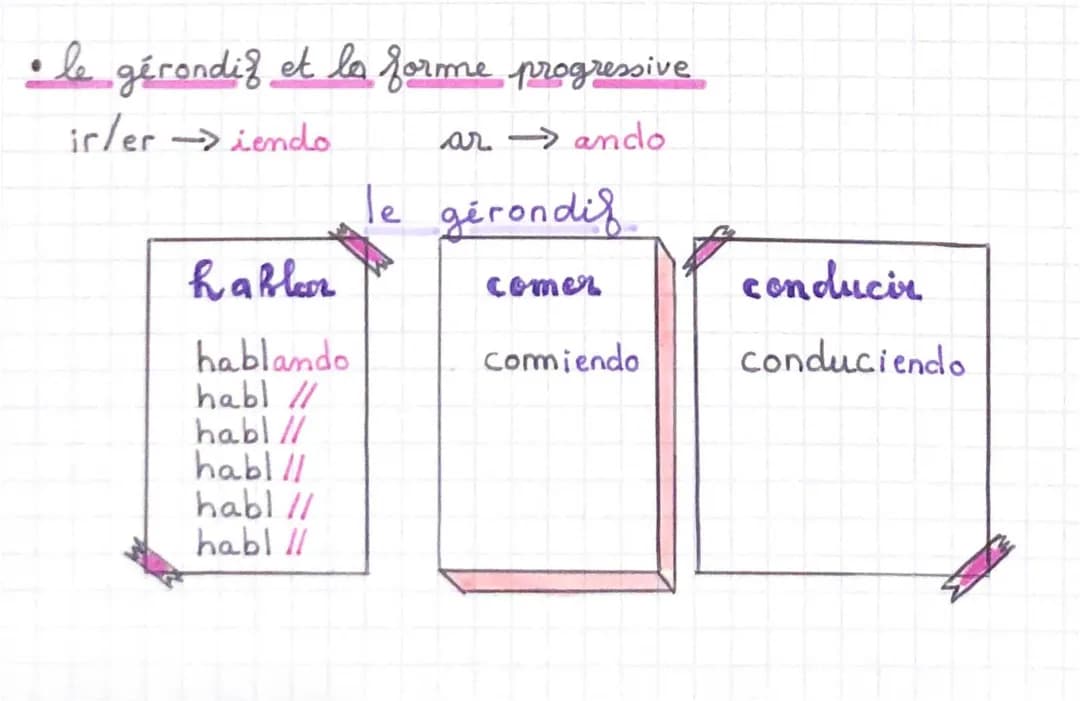 • le gérondif et la forme progressive
ir/er → iendo ar → ando
le gérondif
hablar
hablando
habl //
habl //
habl //
habl //
habl //
comer
comiendo
conducir
conduciendo